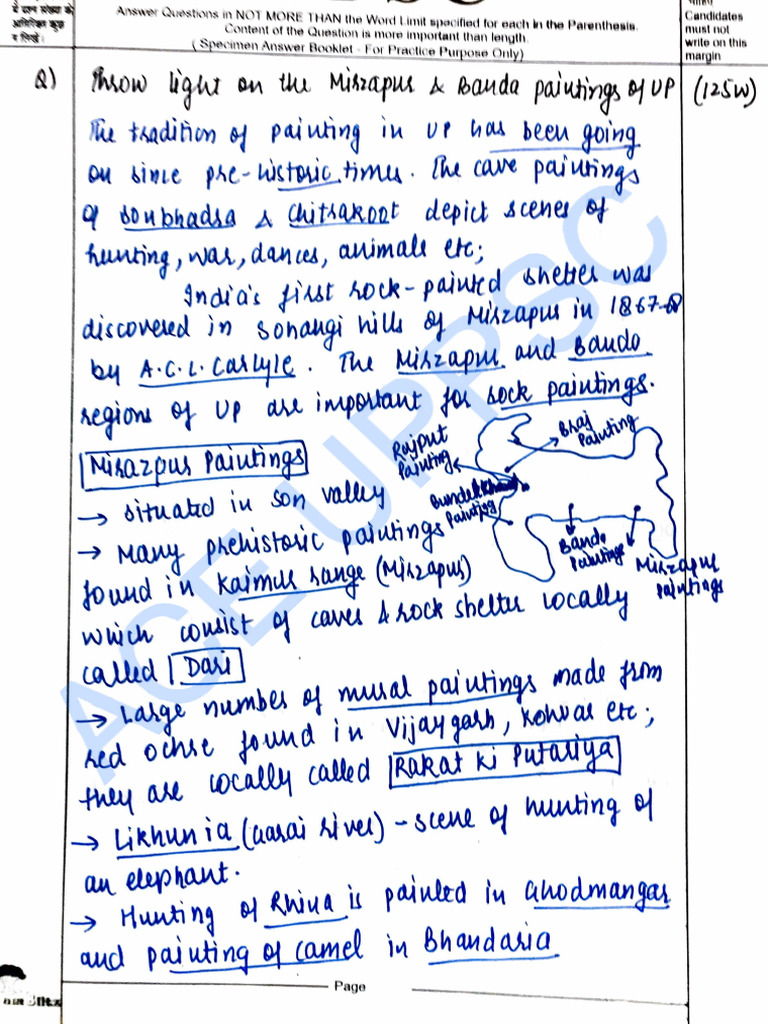 ये प्रश्न संख्या के
अतिरिक्त कुछ
न लिखें।
Answer Questions in NOT MORE THAN the Word Limit specified for each in the Parenthesis.
Content of the Question is more important than length.
( Specimen Answer Booklet - For Practice Purpose Only)
Candidates
must not
write on this
margin
Q) Throw light on the Mirzapur & Banda paintings of UP (125W)
The tradition of painting in UP has been going
on since pre-historic times. The cave paintings
of Sonbhadra & Chitrakoot depict scenes of
hunting, war, dances, animals etc;
India's first rock-painted shelter was
discovered in Sohangi hills of Mirzapur in 1867-68
by A.C.L. Carlyle. The Mirzapur and Banda
regions of UP are important for rock paintings.
Mirzapur Paintings
→ situated in son valley
→ Many prehistoric paintings
found in Kaimur range (Mirzapur)
which consist of caves & rock shelter locally
called Dari
Rajput
Painting
Braj
Painting
Bundelkhand
Painting
Banda
Paintings
Mirzapur
Paintings
→ Large number of mural paintings made from
red ochre found in Vijaygarh, Kohvar etc;
they are locally called Rakat Ki Putariya
→ Likhunia (Garai river) - scene of hunting of
an elephant.
→ Hunting of Rhina is painted in Ghodmangar
and painting of camel in Bhandaria
Page
ACE UPPSC